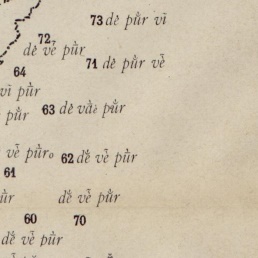 73 dè pŭr vī
72
dè vĕ̀ pŭ̀r
71 dè pŭr vĕ̀
64
vī pŭ̀r
63 dè vàè pŭ̀r
pŭ̀r
vĕ̀ pŭro
62 dĕ̀ vĕ̀ pŭr
61
ŭr
dĕ̀ vĕ̀ pŭ̀r
60
70
dĕ̀ vĕ̀ pŭr